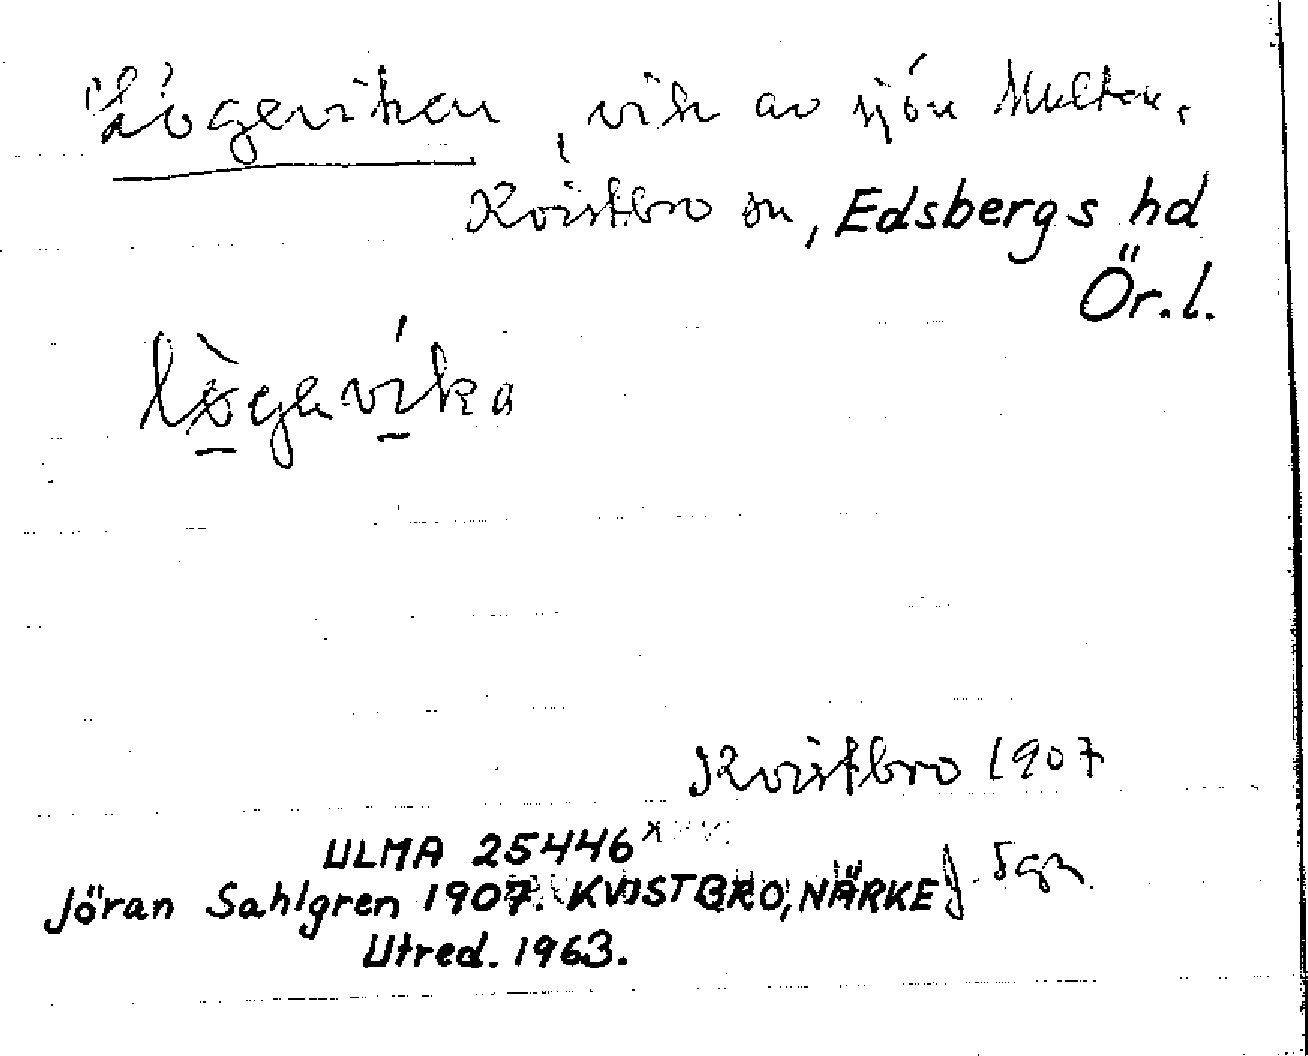 "Lögeviken", vik av sjön Multen.
Kvistbro sn, Edsbergs hd
Ör.l.
lögevika
Kvistbro 1907
ULMA 25446
J. Sgn
Jöran Sahlgren 1907. KVISTBRO, NÄRKE
Utred. 1963.